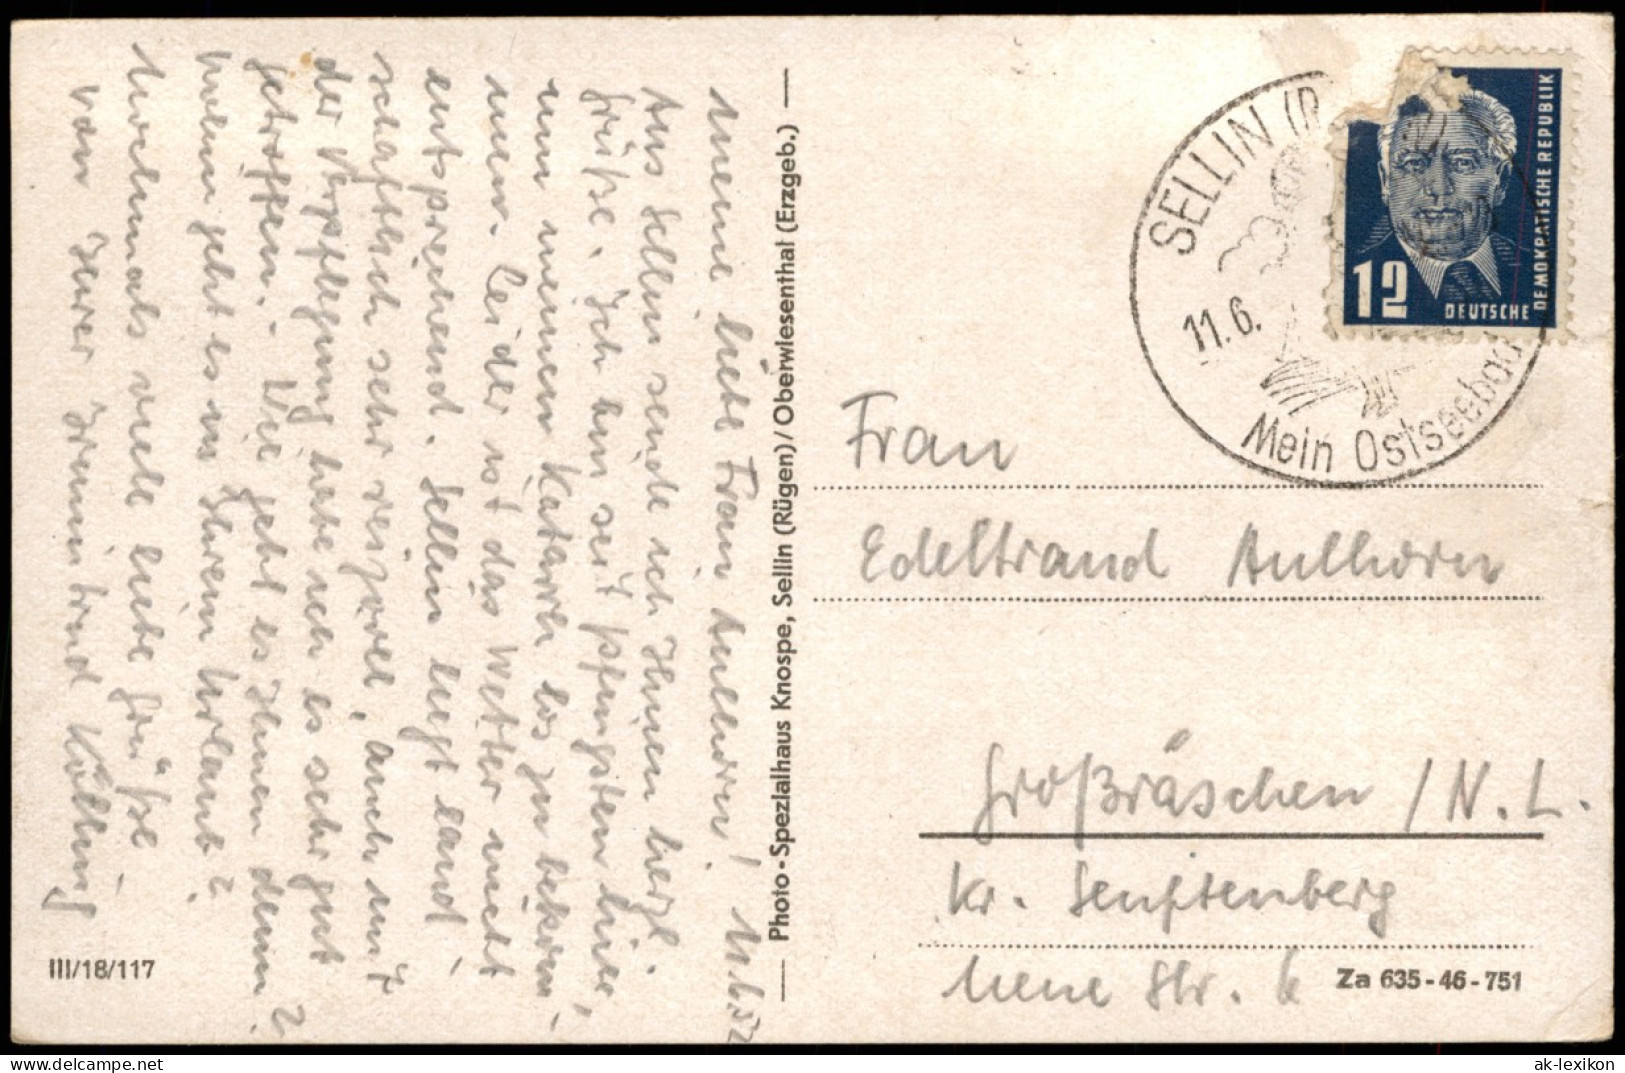 Meine liebe Frau Aulhorn! 11.6.52
Aus Sellin sende ich Ihnen herzl.
Grüße. Ich bin seit Pfingsten hier,
um meinen Katarrh los zu bekom-
men. Leider ist das Wetter nicht
entsprechend. Sellin liegt land-
schaftlich sehr reizvoll, auch mit
der Verpflegung habe ich es sehr gut
getroffen. - Wie geht es Ihnen denn?
Wann geht es in Ihren Urlaub?
Nochmals viele liebe Grüße
von Ihrer Irmintrud
III/18/117
Photo-Spezialhaus Knospe, Sellin (Rügen) / Oberwiesenthal (Erzgeb.)
SELLIN (R
11.6.
Mein Ostseebad
12
DEUTSCHE
DEMOKRATISCHE REPUBLIK
Frau
Edeltraud Aulhorn
Großräschen / N.L.
Kr. Senftenberg
Neue Str. 6
Za 635-46-751
ak-lexikon